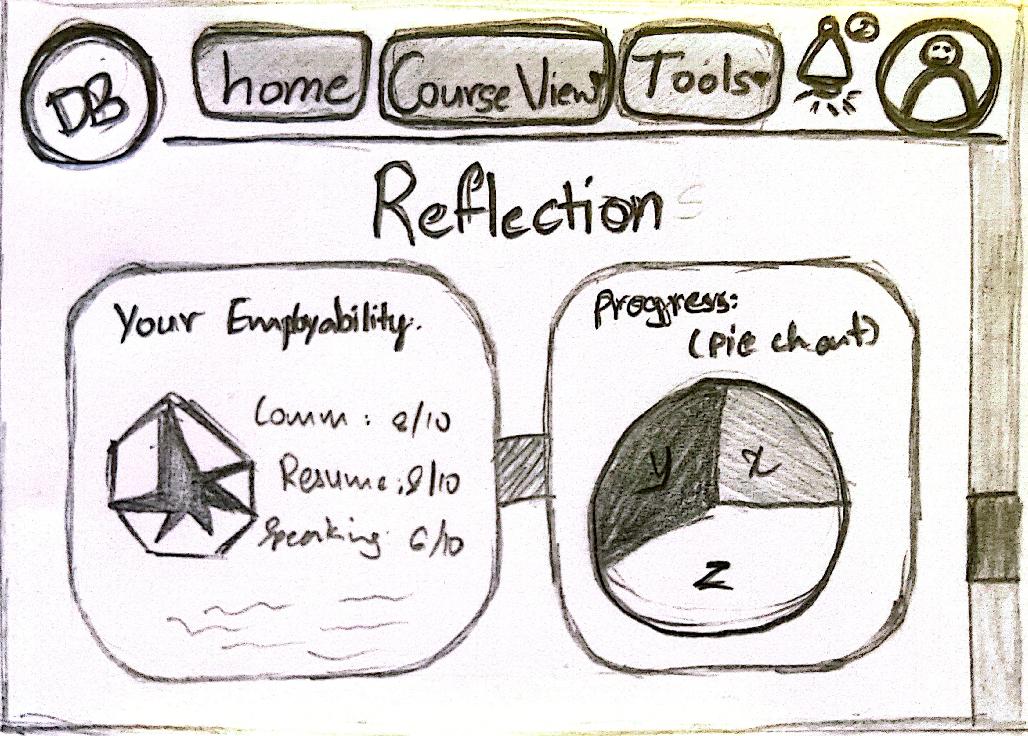 DB
home
Course View
Tools
Reflection
Your Employability:
Comm: 8/10
Resume: 8/10
Speaking: 6/10
Progress:
(pie chart)
y
x
z